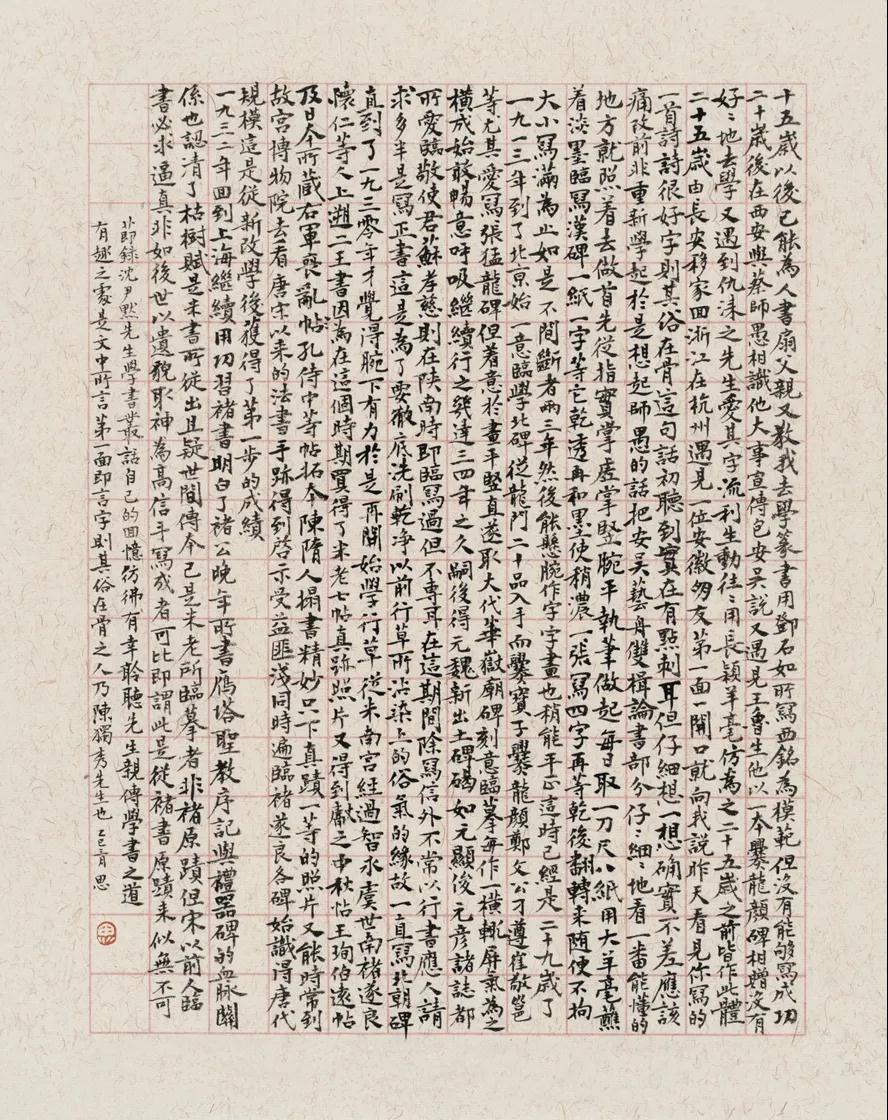 十五歲以後已能為人書扇父親又教我去學篆書用鄧石如所寫西銘為模範但沒有能夠寫成功
二十歲後在西安與蔡師愚相識他大事宣傳包安吳說又遇見王魯生他以一本爨龍顏碑相贈沒有
好〻地去學又遇到仇淶之先生愛其字流利生動往〻用長穎羊毫仿為之二十五歲之前皆作此體
二十五歲由長安移家回浙江在杭州遇見一位安徽朋友第一面一開口就向我說昨天看見你寫的
一首詩詩很好字則其俗在骨這句話初聽到實在有點刺耳但仔細想一想確實不差應該
痛改前非重新學起於是想起師愚的話把安吳藝舟雙楫論書部分仔〻細〻地看一番能懂的
地方就照着去做首先從指實掌虛掌豎腕平執筆做起每日取一刀尺八紙用大羊毫蘸
着淡墨臨寫漢碑一紙一字等它乾透再和墨使稍濃一張寫四字再等乾後翻轉来随便不拘
大小寫滿為止如是不間斷者兩三年然後能懸腕作字字畫也稍能平正這時已經是二十九歲了
一九一三年到了北京始一意臨學北碑從龍門二十品入手而爨寶子爨龍顏鄭文公刁遵崔敬邕
等尤其愛寫張猛龍碑但着意於畫平豎直遂取大代華嶽廟碑刻意臨摹每作一橫輒屏氣為之
橫成始敢暢意呼吸繼續行之幾達三四年之久嗣後得元魏新出土碑碣如元顯儁元彦諸誌都
所愛臨敬使君蘇孝慈則在陝南時即臨寫過但不專耳在這期間除寫信外不常以行書應人請
求多半是寫正書這是為了要徹底洗刷乾净以前行草所沾染上的俗氣的緣故一直寫北朝碑
直到了一九三零年才覺得腕下有力於是再開始學行草從米南宮經過智永虞世南褚遂良
懷仁等人上溯二王書因為在這個時期買得了米老七帖真跡照片又得到獻之中秋帖王珣伯遠帖
及日本所藏右軍喪亂帖孔侍中等帖拓本陳隋人搨書精妙只下真蹟一等的照片又能時常到
故宮博物院去看唐宋以来的法書手跡得到啓示受益匪浅同時遍臨褚遂良各碑始識得唐代
規模這是從新改學後獲得了第一步的成績
一九三二年回到上海繼續用功習褚書明白了褚公晚年所書雁塔聖教序記與禮器碑的血脉關
係也認清了枯樹賦是米書所從出且疑世間傳本已是米老所臨摹者非褚原蹟但宋以前人臨
書必求逼真非如後世以遺貌取神為高信手寫成者可比即謂此是從褚書原蹟来似無不可
北即錄沈尹默先生學書叢話自己的回憶仿彿有幸聆聽先生親傳學書之道
有趣之處是文中所言第一面即言字則其俗在骨之人乃陳獨秀先生也 乙巳 思